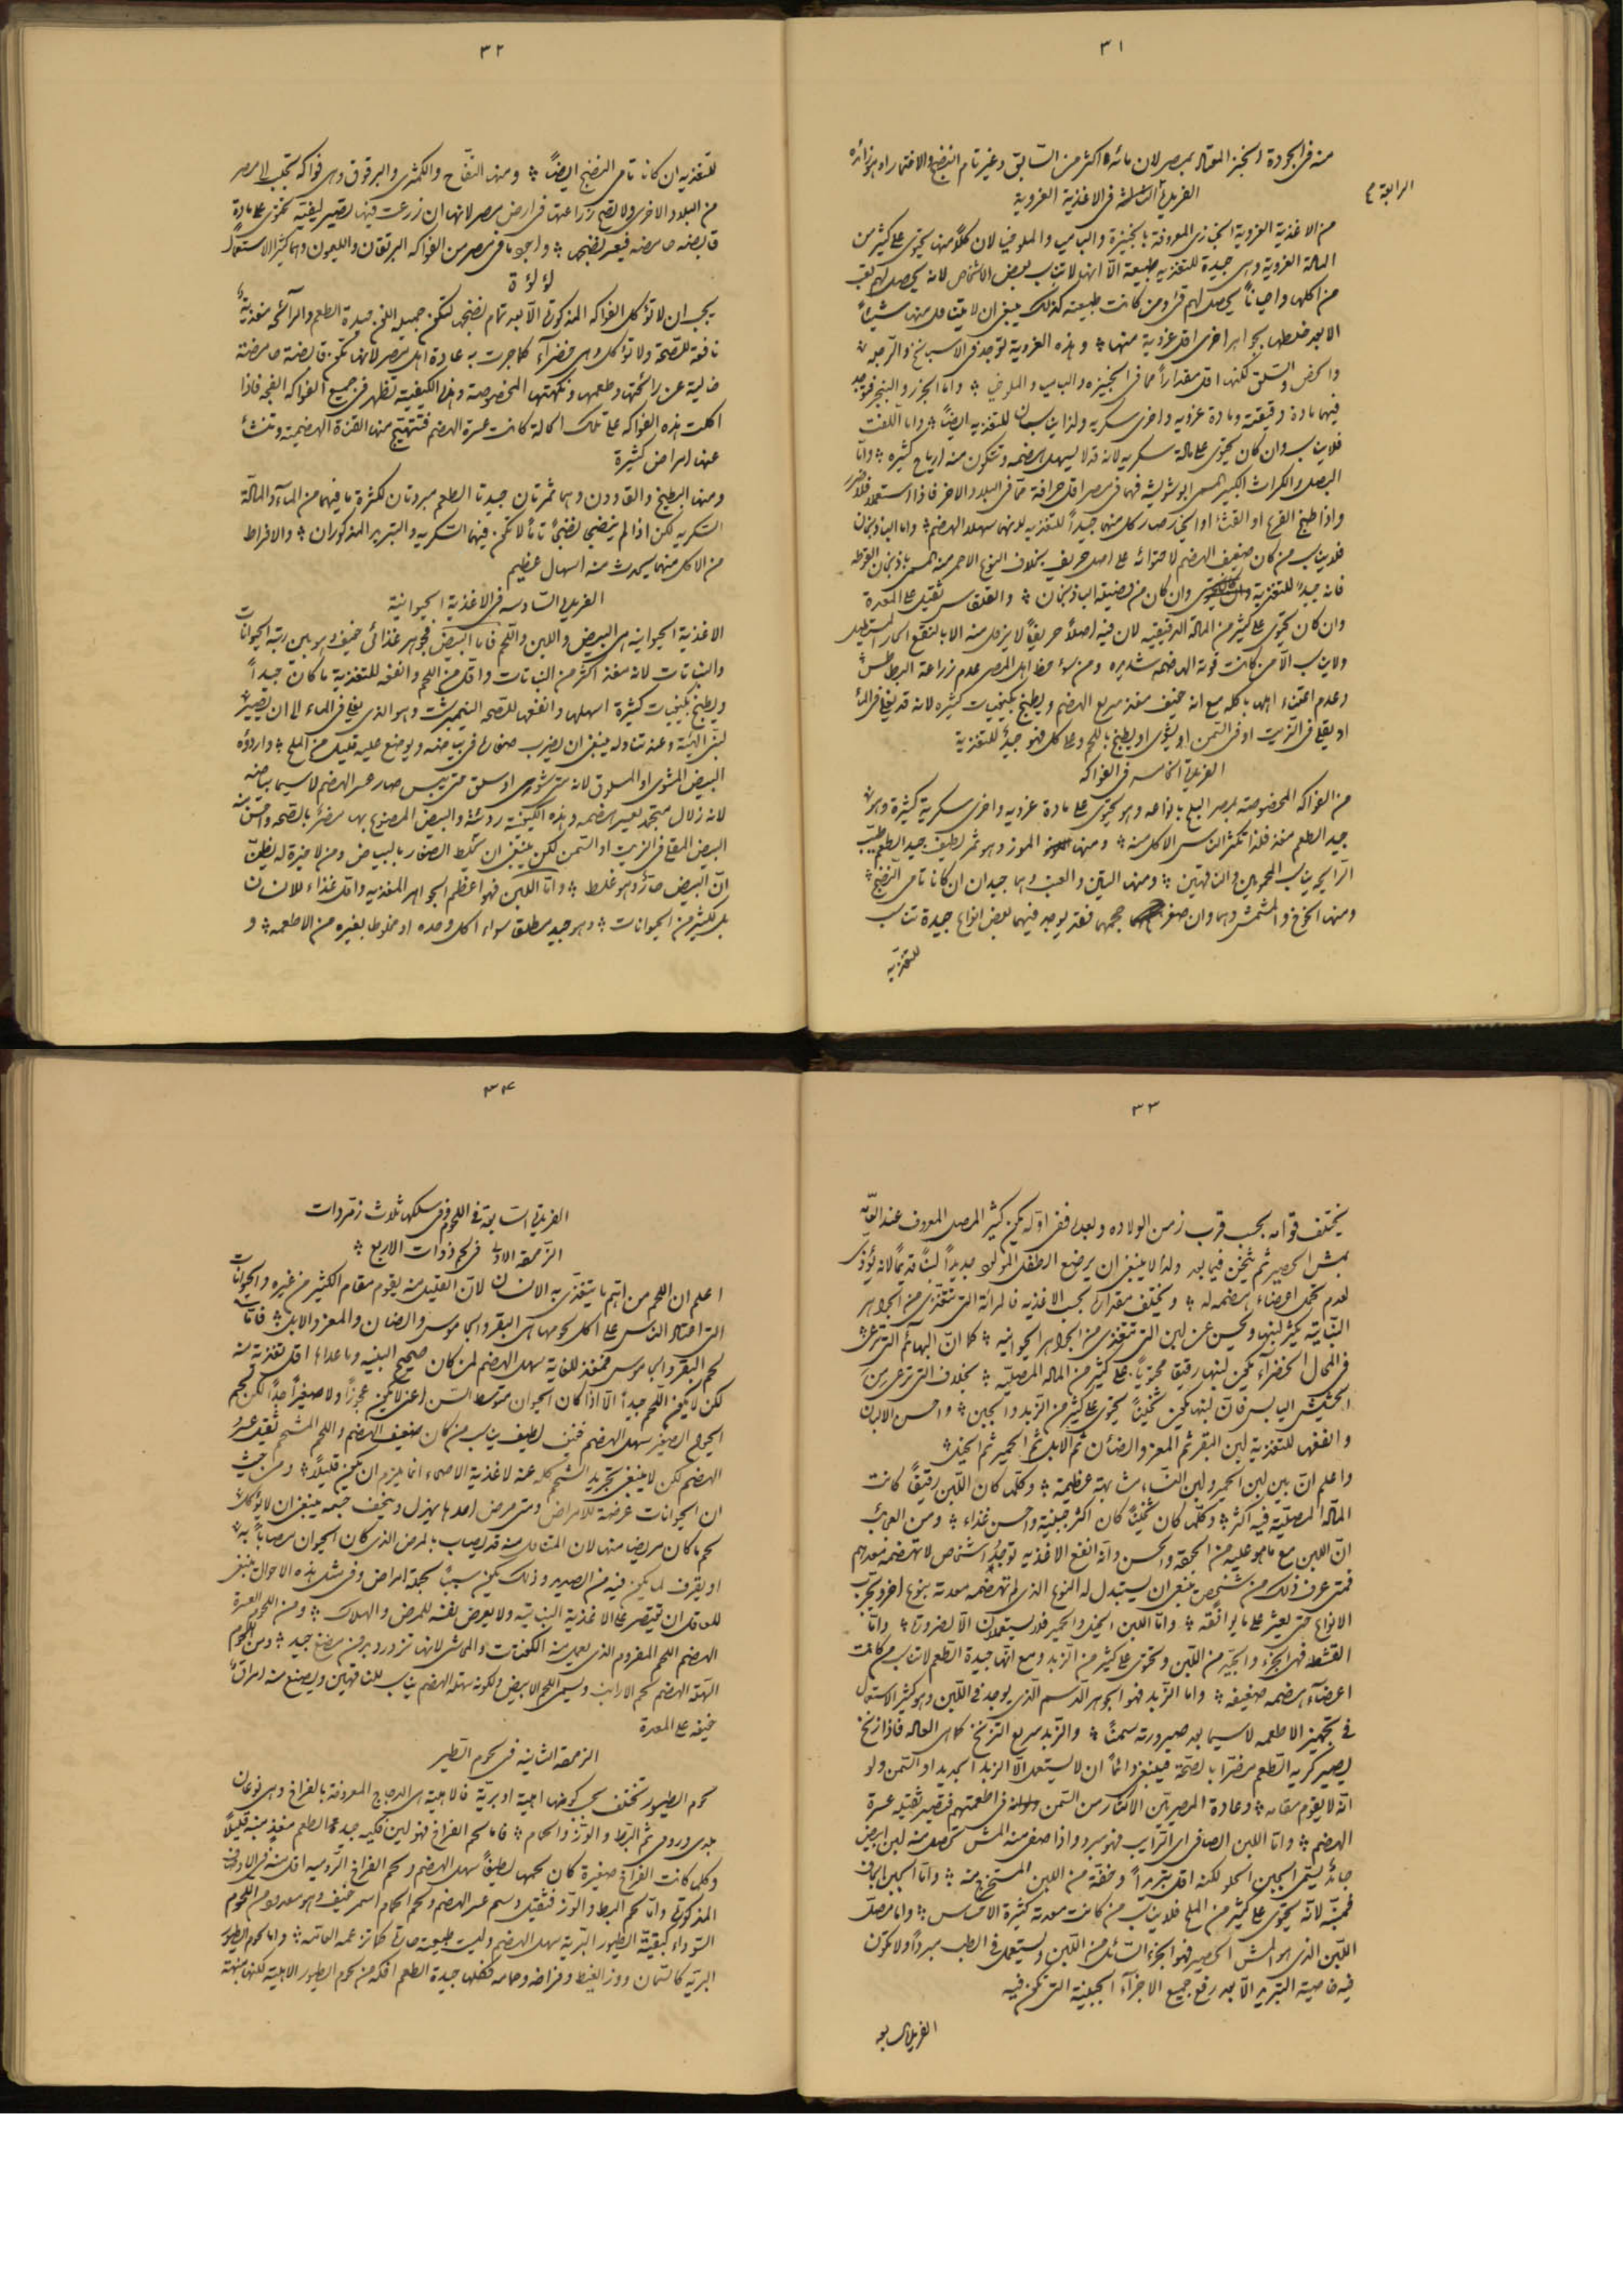 ٣١
منه فى الجودة والخبز المعتاد بمصر لان مائه اكثر من السابق وغير تام النضج والاختمار اوهو زائده
الرابعة
الفريدة الثالثة فى الاغذية الغروية
من الاغذية الغروية الخبازى المعروفة بالخبيزة والباميا والملوخيا لان كلا منها يحتوى على كثير من
المادة الغروية وهى جيدة للتغذية طبيعة الا انها لا تناسب بعض الاشخاص لانه يحصل لهم تعب
من اكلها واحيانا يحصل لهم قئ ومن كانت طبيعته كذلك ينبغى ان لا يتعاطى منها شيئا
الا بعد خلطها بجواهر اخرى اقل غروية منها وهذه الغروية توجد فى الاسبانخ والرجله
والسلق لكنها اقل مقدارا مما فى الخبيزه والباميا والملوخيا واما الجزر والبنجر فتوجد
فيهما مادة دقيقية ومادة غرويه واخرى سكريه ولذا يناسبان للتغذيه ايضا واما اللفت
فلا يناسب وان كان يحتوى على مادة سكريه لانه قد لا يسهل هضمه وتتكون منه ارياح كثيره واما
البصل والكراث الكبير المسمى ابوشوشة فهما فى مصر اقل حرافة مما فى البلاد الاخر فاذا استعملا فلا ضرر
واذا طبخ القرع او القثا او الخيار صار كل منها جيدا للتغذيه لانها سهلة الهضم واما الباذنجان
فلا يناسب من كان ضعيف الهضم لاحتوائه على اصل حريف بخلاف النوع الاحمر منه المسمى باذنجان القوطه
فانه جيد للتغذية وان كان من فصيلة الباذنجان والقلقاس ثقيل على المعدة
وان كان يحتوى على كثير من المادة الدقيقيه لان فيه اصلا حريفا لا يزول منه الا بالنقع الحار المستطيل
ولا يناسب الا من كانت قوته الهاضمه شديده ومن سؤ حظ اهل المصر عدم زراعة البطاطس
وعدم اعتناء اهلها باكله مع انه خفيف مغذ سريع الهضم ويطبخ بكيفيات كثيره لانه قد يغلى فى الماء
او يقلى فى الزيت او فى السمن او يشوى او يطبخ باللحم وعلى كل فهو جيد للتغذية
الفريدة الخامسه فى الفواكه
من الفواكه المخصوصة بمصر البلح بانواعه وهو يحتوى على مادة غرويه واخرى سكرية كثيرة وهو
جيد الطعم مغذ فلذا تكثر الناس الاكل منه ومنها الموز وهو ثمر لطيف جيد الطعم طيب
الرائحة يناسب المحمومين والناقهين ومنها التين والعنب وهما جيدان ان كانا تامى النضج
ومنها الخوخ والمشمش وهما وان صغر حجمهما فقد يوجد فيهما بعض انواع جيدة تناسب
للتغذيه
٣٢
للتغذيه ان كانا تامى النضج ايضا ومنها التفاح والكمثرى والبرقوق وهى فواكه تجلب الى مصر
من البلاد الاخرى ولا تصح زراعتها فى ارض مصر لانها ان زرعت فيها تصير ليفيه تحتوى على مادة
قابضه حامضه فيعسر نضجها واجود ما فى مصر من الفواكه البرتقان والليمون وهما كثير الاستعمال
لؤلؤة
يجب ان لا تؤكل الفواكه المذكورة الا بعد تمام نضجها لتكون جميلة اللون جيدة الطعم والرائحه مغذية
نافعة للصحة ولا تؤكل وهى خضراء كما جرت به عادة اهل مصر لانها تكون قابضة حامضة
خالية عن رائحتها وطعمها ونكهتها المخصوصة وهذه الكيفية تظهر فى جميع الفواكه الفجه فاذا
اكلت هذه الفواكه على تلك الحالة كانت عسرة الهضم فتتهيج منها القناة الهضميه وتنشأ
عنها امراض كثيرة
ومنها البطيخ والقاوون وهما ثمرتان جيدتا الطعم مبردتان لكثرة ما فيهما من الماء والمادة
السكريه لكن اذا لم ينضجا نضجا تاما لا تكون فيهما السكريه والتبريد المذكوران والافراط
من الاكل منهما يحدث منه اسهال عظيم
الفريدة السادسه فى الاغذية الحيوانية
الاغذية الحيوانيه هى البيض واللبن واللحم فاما البيض فجوهر غذائى خفيف وهو بين رتبة الحيوانات
والنباتات لانه مغذ اكثر من النباتات واقل من اللحم وانفعه للتغذيه ما كان جيدا
ويطبخ بكيفيات كثيرة اسهلها وانفعها للصحه النيمبرشت وهو الذى يغلى فى الماء الى ان يصير
لبنى الهيئة وعند تناوله ينبغى ان يضرب صفاره فى بياضه ويوضع عليه قليل من الملح واردؤه
البيض المشوى او المسلوق لانه متى شوى او سلق حتى يبس صار عسر الهضم لاسيما بياضه
لانه زلال متجمد يعسر هضمه وهذه الكيفية رديئة والبيض المصنوع بها مضر بالصحه واحسن منه
البيض المقلى فى الزيت او السمن لكن ينبغى ان يخلط الصفار بالبياض ومن لا خبرة له يظن
ان البيض حار وهو غلط واما اللبن فهو اعظم الجواهر المغذيه واقل غذاء للانسان
بل لكثير من الحيوانات وهو جيد مطلقا سواء اكل وحده او مخلوطا بغيره من الاطعمه و
٣٣
يختلف قوامه بحسب قرب زمن الولاده وبعدها ففى اوله يكون كثير المصل المعروف عند العامه
بمش الحصير ثم يثخن فيما بعد ولذا لا ينبغى ان يرضع الطفل المولود جديدا لبنا قديما لانه يؤذى
لعدم تحمل اعضاء هضمه له ويختلف مقداره بحسب الاغذيه فالمرأة التى تتغذى من الجواهر
النباتيه يكثر لبنها ويحسن عن لبن التى تتغذى من الجواهر الحيوانيه كما ان البهائم التى ترعى
فى المحال الخضراء يكون لبنها رقيقا محتويا على كثير من المادة المصليه بخلاف التى ترعى من
الحشيش اليابس فان لبنها يكون ثخينا يحتوى على كثير من الزبد والجبن واحسن الالبان
وانفعها للتغذية لبن البقر ثم المعز والضأن ثم الابل ثم الحمير ثم الخيل
واعلم ان بين لبن الحمير ولبن النساء مشابهة عظيمة وكلما كان اللبن رقيقا كانت
المادة المصليه فيه اكثر وكلما كان ثخينا كان اكثر جبنية واحسن غذاء ومن العجائب
ان اللبن مع ما هو عليه من الخفة والحسن وانه انفع الاغذيه توجد اشخاص لا تهضمه معدهم
فمتى عرف ذلك من شخص ينبغى ان يستبدل له النوع الذى لم تهضمه معدته بنوع اخر ويجرب
الانواع حتى يعثر على ما يوافقه واما اللبن الخيل والحمير فلا يستعملان الا لضرورة واما
القشطه فهى الجزء والجيد من اللبن وتحتوى على كثير من الزبد ومع انها جيدة الطعم لا تناسب من كانت
اعضاء هضمه ضعيفه واما الزبد فهو الجوهر الدسم الذى يوجد فى اللبن وهو كثير الاستعمال
فى تجهيز الاطعمه لاسيما بعد صيرورته سمنا والزبد سريع التزنخ كما هى العاده فاذا زنخ
يصير كريه الطعم مضرا بالصحة فينبغى دائما ان لا يستعمل الا الزبد الجديد او السمن ولو
انه لا يقوم مقامه وعادة المصريين الاكثار من السمن فى اطعمتهم فتصير ثقيلة عسرة
الهضم واما اللبن الصافى اى الرايب فهو مبرد واذا صفى منه المش تحصل منه لبن ابيض
جامد يسمى الجبن الحلو لكنه اقل تبريدا وخفة من اللبن المستخرج منه واما الجبن الجاف
لانه يحتوى على كثير من الملح فلا يناسب من كانت معدته كثيرة الاحساس واما مصل
اللبن الذى هو المش الحصير فهو الجزء السائل من اللبن ويستعمل فى الطب مبردا ولا تكون
فيه خاصية التبريد الا بعد رفع جميع الاجزاء الجبنية التى تكون فيه
الفريدة السابعه
٣٤
الفريدة السابعة فى اللحوم وفى سلكها ثلاث زمردات
الزمردة الاولى فى لحوم ذوات الاربع
اعلم ان اللحم من اهم ما يتغذى به الانسان لان القليل منه يقوم مقام الكثير من غيره والحيوانات
التى اعتاد الناس على اكل لحومها هى البقر والجاموس والضان والمعز والابل فاما
لحم البقر والجاموس فمغذ للغاية سهل الهضم لمن كان صحيح البنيه وما عداه اقل تغذية منه
لكن لا يكون اللحم جيدا الا اذا كان الحيوان متوسط السن اعنى لا يكون عجوزا ولا صغيرا جدا لكن لحم
الحيوان الصغير سهل الهضم خفيف لطيف يناسب من كان ضعيف الهضم واللحم المشحم ثقيل عسر
الهضم لكن لا ينبغى تجريد الشحم كله عنه لاغذية الاصحاء انما يلزم ان يكون قليلا ومن حيث
ان الحيوانات عرضة للامراض ومتى مرض احدها يهزل وينحف جسمه ينبغى ان لا يؤكل
لحم ما كان مريضا منها لان المتعاطى منه قد يصاب بالمرض الذى كان الحيوان مصابا به
او يقرف لما يكون فيه من الصديد وذلك يكون سببا لجملة امراض وفى مثل هذه الاحوال ينبغى
للعاقل ان يقتصر على الاغذية النباتيه ولا يعرض نفسه للمرض والهلاك ومن اللحوم العسرة
الهضم اللحم المفروم الذى يعمل منه الكفتات والمحاشى لانها تزدرد بدون مضغ جيد ومن اللحوم
السهلة الهضم لحم الارانب ويسمى اللحم الابيض ولكونه سهل الهضم يناسب للناقهين ويصنع منه امراق
خفيفه على المعدة
الزمردة الثانيه فى لحوم الطير
لحوم الطيور تختلف بحسب كونها اهلية او برية فالاهلية هى الدجاج المعروفة بالفراخ وهى نوعان
بلدى ورومى ثم البط والوز والحمام فاما لحم الفراخ فهو لين فكيه جيد الطعم مغذ منبه قليلا
وكلما كانت الفراخ صغيرة كان لحمها لطيفا سهل الهضم ولحم الفراخ الروميه اقل منه فى الاوصاف
المذكورة واما لحم البط والوز فثقيل دسم عسر الهضم ولحم الحمام اسمر خفيف وهو معدود من اللحوم
السوداء كبقية الطيور البرية سهل الهضم وليست طبيعته حارة كما تزعمه العامه واما لحوم الطيور
البرية كالسمان ووز الغيط وفراخه وحمامه فكلها جيدة الطعم افكه من لحوم الطيور الاهلية لكنها منبهة